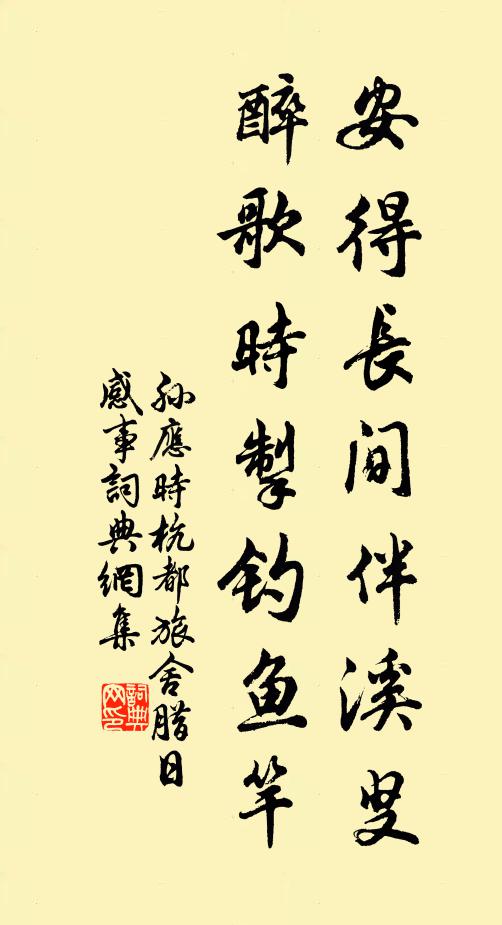 安得長间伴溪叟
醉歌時掣釣魚竿
孙應時杭都旅舍腊日
感事詞典網集
詞典
网印